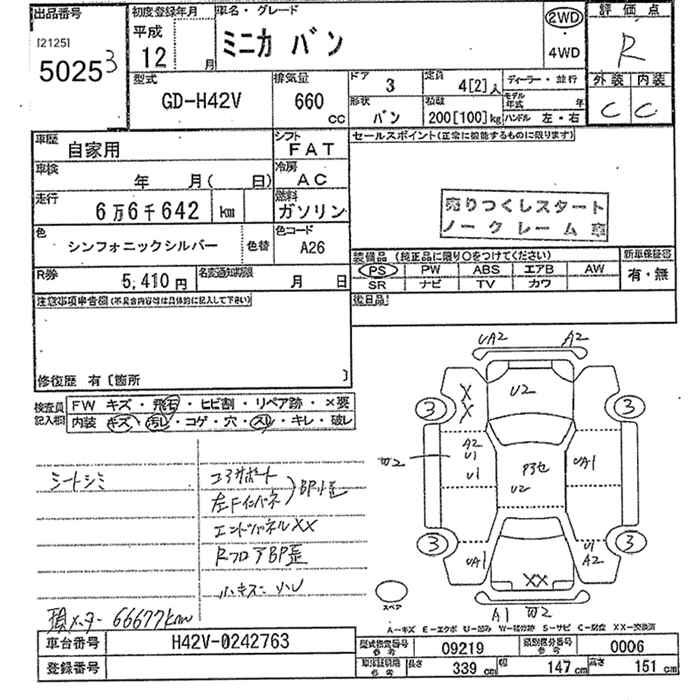 出品番号
[2125]
5025 3
初度登録年月
平成
12 月
車名・グレード
ミニカ バン
2WD
・
4WD
評価点
R
外装 内装
C C
型式
GD-H42V
排気量
660 cc
ドア
3
定員
4[2]人
形状
バン
積載
200[100]kg
ディーラー・並行
モデル年式 年
ハンドル 左・右
車歴
自家用
シフト
FAT
車検
年 月( 日)
冷房
AC
走行
6万6千642 km
燃料
ガソリン
色
シンフォニックシルバー
色替
色コード
A26
R券
5,410円
名変通知期限
月 日
セールスポイント(正常に機能するものに限ります)
売りつくしスタート
ノークレーム
装備品 (純正品に限り○をつけてください)
PS PW ABS エアB AW
SR ナビ TV カワ
新車保証書
有・無
後日品
注意事項申告欄(不具合内容等は具体的に記入して下さい)
修復歴 有〔箇所 〕
検査員記入欄
FW キズ・飛石・ヒビ割・リペア跡・×要
内装 キズ・汚レ・コゲ・穴・スレ・キレ・破レ
シートシミ
コアサポート
左Fインパネ
BP小歪
エンドパネルXX
RフロアBP歪
小キズ・小凹
積メーター 66677km
UA2 A2
U2
X
X
3 3
A2
U1
U1
W2
P3セ
U2
UA1
3 3
UA1
U1
A2
XX
A1 W2
スペア
A-キズ E-エクボ U-凹み W-補修跡 S-サビ C-腐食 XX-交換済
車台番号 H42V-0242763
登録番号
型式指定番号 参考 09219
類別区分番号 参考 0006
車体証明用 参考 長さ 339cm 幅 147cm 高さ 151cm